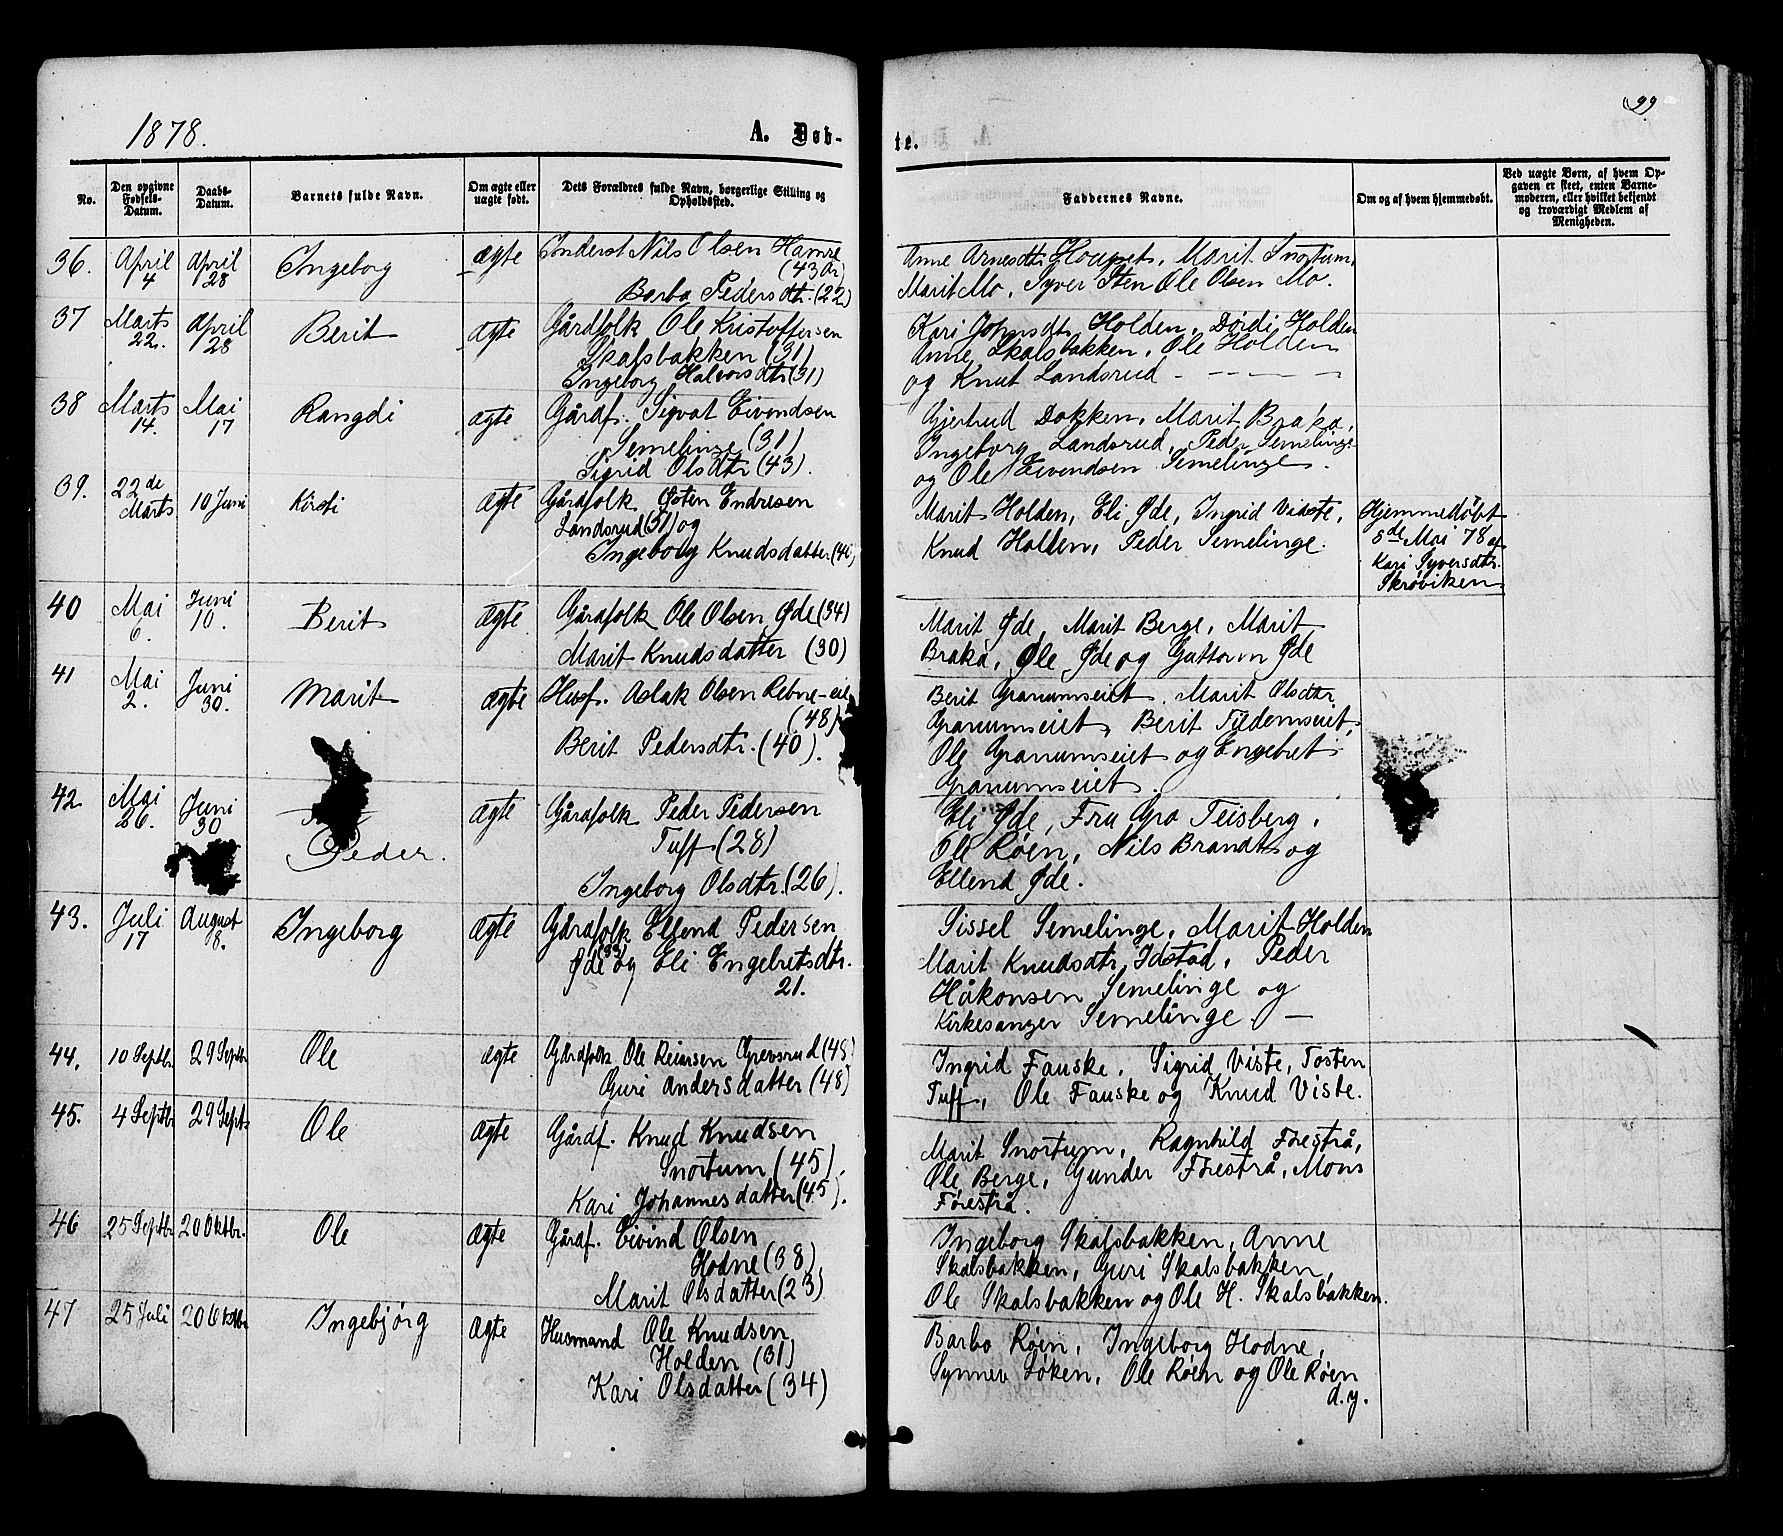 1878.
A. Døb-
te.
99
No.
Den opgivne Fødsels-Datum.
Daabs-Datum.
Barnets fulde Navn.
Om ægte eller uægte født.
Dets Forældres fulde Navn, borgerlige Stilling og Opholdssted.
Faddernes Navne.
Om og af hvem hjemmedøbt.
Ved uægte Børn, af hvem Op-
gaven er skeet, enten Barne-
moderen, eller hvilket bekjendt
og troværdigt Medlem af
Menigheden.
36. April 4 April 28 Ingeborg ægte Inderst Nils Olsen Hamre
(43 År)
Barbo Pedersdtr. (22)
Anne Arnesdtr. Marit Snortum,
Marit Mo, Syver Sten Ole Olsen Mo.
37 Marts 22. April 28 Berit ægte Gårdfolk Ole Kristoffersen
Skalsbakken (31)
Ingeborg Halvorsdtr (31)
Kari Johnsdtr. Holden, Dordi Holden
Anne Skalsbakken, Ole Holden
og Knut Landsrud - - - -
38 Marts 14. Mai 17 Rangdi ægte Gårdf. Sigvat Eivendsen
Semelinge (31)
Sigrid Olsdtr (43).
Gjertrud Dokken, Marit Braka,
Ingeborg Landsrud, Peder Semelinge
og Ole Eivendsen Semelinge.
39. 22de Marts 10 Juni Kirsti ægte Gårdfolk Østen Endresen
Landsrud (37) og
Ingeborg Knudsdatter (41)
Marit Holden, Eli Øde, Ingrid Viste,
Knud Holden, Peder Semelinge.
Hjemmedøbt
8de Mai 78 af
Kari Syversdtr.
Skrøviken
40 Mai 6. Juni 10. Berit ægte Gårdfolk Ole Olsen Øde (34)
Marit Knudsdatter (30)
Marit Øde, Marit Berge, Marit
Braka, Ole Øde og Guttorm Øde
41 Mai 2. Juni 30. Marit ægte Husf. Aslak Olsen Rebne-eie
(48)
Berit Pedersdtr. (40).
Berit Granumseiet, Marit Olsdtr.
Granumseiet, Berit Tildemseiet,
Ole Granumseiet og Engebret
Granumseiet.
42. Mai 26. Juni 30 Peder. ægte Gårdfolk Peder Pedersen
Tuff (28)
Ingeborg Olsdtr. (26).
Eli Øde, Fru Gro Teisberg,
Ole Røen, Nils Brandt og
Ellend Øde.
43. Juli 17 August 8. Ingeborg ægte Gårdfolk Ellend Pedersen
Øde (33) og Eli Engebretsdtr.
21.
Sissel Semelinge, Marit Holden
Marit Knudsdtr. Idstad, Peder
Håkonsen Semelinge og
Kirkesanger Semelinge. —
44. 10 Septbr 29 Septbr Ole ægte Gårdfolk Ole Reiarsen Grevsrud (48)
Guri Andersdatter (48)
Ingrid Fauske, Sigrid Viste, Tosten
Tuff, Ole Fauske og Knud Viste.
45. 4 Septbr 29 Septbr Ole ægte Gårdf. Knud Knudsen
Snortum (45),
Kari Johannesdatter (45).
Marit Snortum, Ragnhild Førestrå,
Ole Berge, Gunder Førestrå, Mons
Førestrå.
46 25 Septbr 20 Oktbr. Ole ægte Gårdf. Eivind Olsen
Hodne (38)
Marit Olsdatter (23)
Ingeborg Skalsbakken, Anne
Skalsbakken, Guri Skalsbakken,
Ole Skalsbakken og Ole H. Skalsbakken.
47 25 Juli 20 Oktbr Ingebjørg ægte Husmand Ole Knudsen
Holden (31)
Kari Olsdatter (34)
Barbo Røen, Ingeborg Hodne,
Synneve Løken, Ole Røen og Ole Røen
d.y.